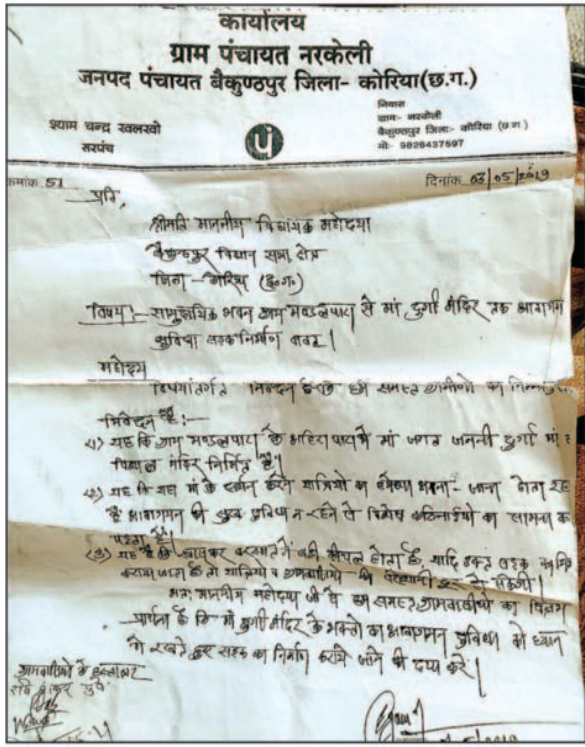 कार्यालय
ग्राम पंचायत नरकेली
जनपद पंचायत बैकुण्ठपुर जिला- कोरिया(छ.ग.)
श्याम चन्द्र खलखो
सरपंच
निवास
ग्राम- नरकेली
बैकुण्ठपुर जिला- कोरिया (छ.ग.)
मो- 9826437697
क्रमांक 51
दिनांक 03/05/2019
प्रति,
श्रीमति माननीय विधायक महोदया
बैकुण्ठपुर विधान सभा क्षेत्र
जिला - कोरिया (छ०ग०)
विषय :- सामुदायिक भवन ग्राम मण्डलपारा से मां दुर्गा मंदिर तक आवागमन
सुविधा सड़क निर्माण बावत्।
महोदय
विषयांतर्गत निवेदन है कि हम समस्त ग्रामीणों का
निवेदन है :-
(1) यह कि ग्राम मण्डलपारा के अहिरापारा में मां जगत जननी दुर्गा मां
विशाल मंदिर निर्मित है।
(2) यह कि यहा मां के दर्शन करने यात्रियो का हमेशा आना - जाना होता
है आवागमन की सुविधा न रहने से विशेष कठिनाईयो का सामना
पड़ता है।
(3) यह है कि खासकर बरसात में यही कीचड़ होता है, यदि उक्त सड़क का
कराया जाता है तो यात्रियो व ग्रामवासियो की परेशानी दूर हो सकेगी।
अतः माननीय महोदया जी से हम समस्त ग्रामवासीयो का विनम्र
प्रार्थना है कि मां दुर्गा मंदिर के भक्तो का आवागमन सुविधा को ध्यान
में रखते हुए सड़क का निर्माण कराये जाने की दया करें।
ग्रामवासियो के हस्ताक्षर